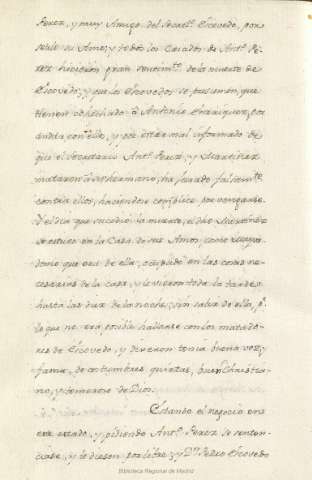 Perez, y muy Amigo del Secret.º Escovedo, por
serlo su Amo, y todos los Criados de Ant.º Pe-
rez hicieron gran sentim.to de la muerte de
Escovedo, y que los Escovedos se presumen, que
tienen cohechado a Antonio Enrriquez, 
con ello, y por estar mal informado de
que el Secretario Ant.º Perez, y Martinez
mataron a su hermano, ha jurado falsam.te
contra ellos, haciendose complice por vengarse.
Y el dia que sucedio la muerte, el dho Martinez
se estuvo en la Casa de sus Amos, como mayor-
domo que era de ella, ocupado en las cosas ne-
cesarias de la casa, y le vieron toda la tarde
hasta las diez de la noche, sin salir de ella, p.r
lo que no era posible hallarse con los matado-
res de Escovedo, y dixeron tenia buena voz, y
fama, de costumbres quietas, buen Christia-
no, y temeroso de Dios.
Estando el negocio en
este estado, y pidiendo Ant.º Perez se senten-
ciase, y le diesen por libre, y D.n Pedro Escovedo
Biblioteca Regional de Madrid